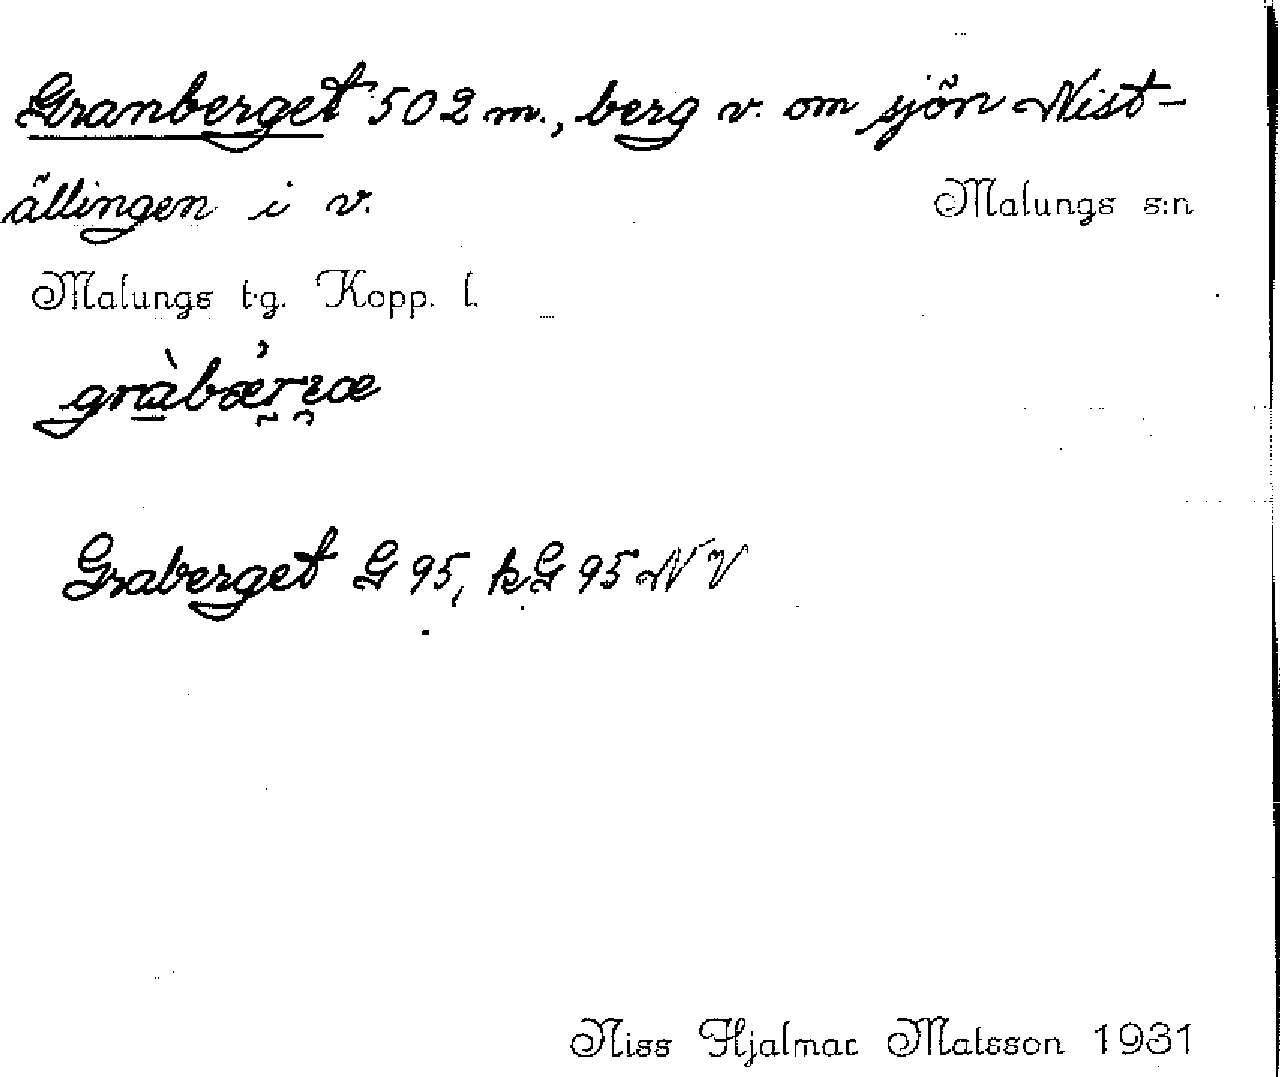 Granberget 502 m., berg v. om sjön Nist-
ällingen i v. Malungs s:n
Malungs tg. Kopp. l.
Graberget G 95, kG 95 NV
Niss Hjalmar Matsson 1931